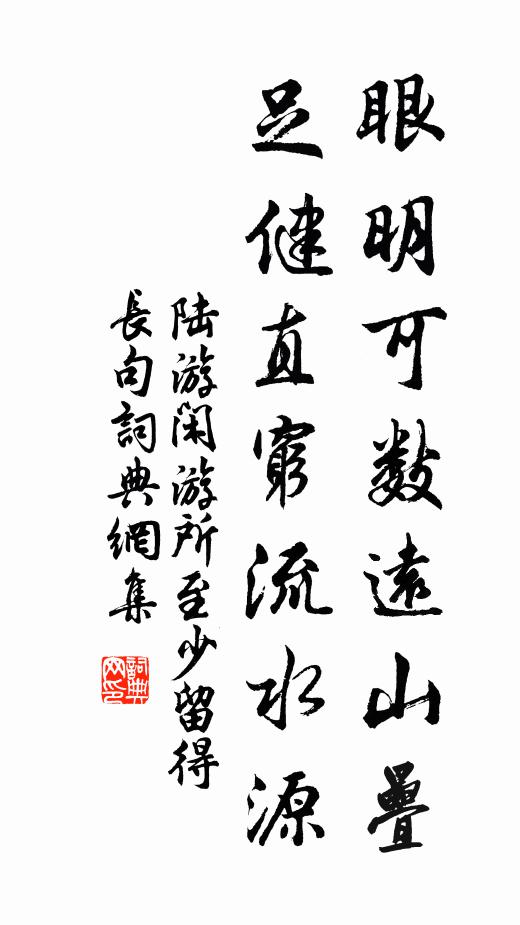 眼明可数遠山疊
足健直窮流水源
陆游閑游所至少留得
長句詞典網集
詞典网印